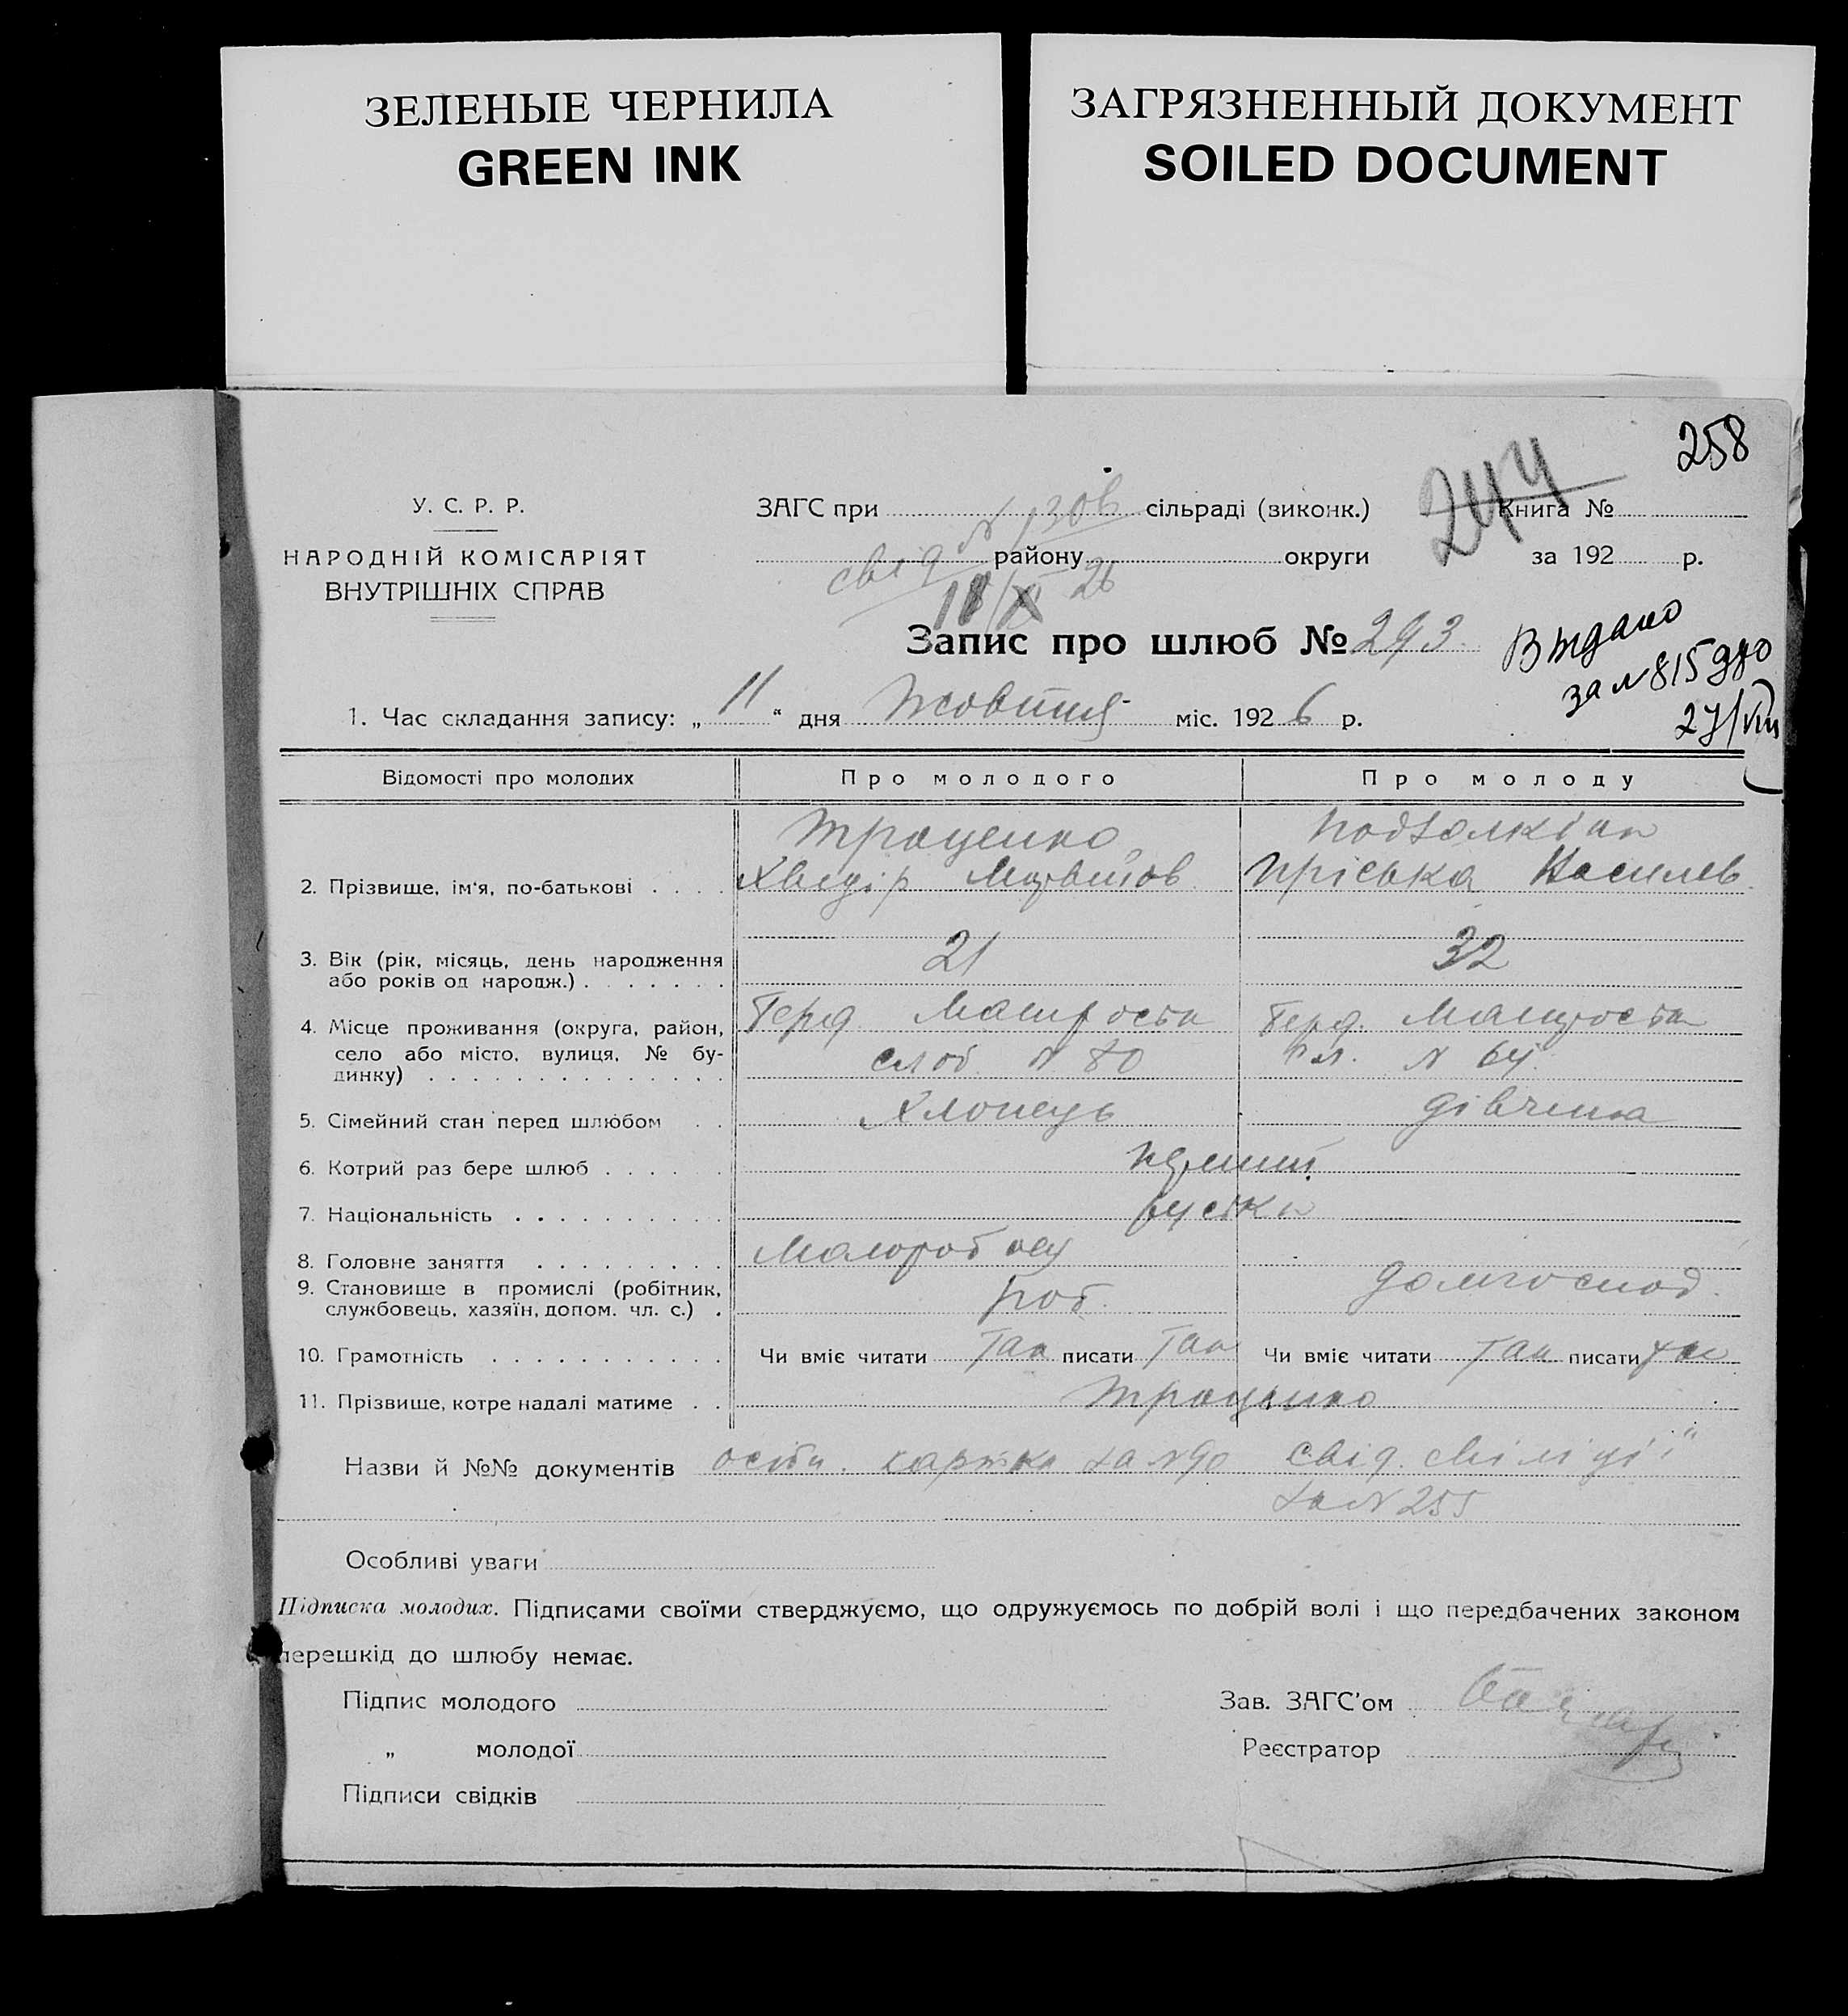 ЗЕЛЕНЫЕ ЧЕРНИЛА
GREEN INK
ЗАГРЯЗНЕННЫЙ ДОКУМЕНТ
SOILED DOCUMENT
258
244
У. С. Р. Р.
НАРОДНІЙ КОМІСАРІЯТ
ВНУТРІШНІХ СПРАВ
ЗАГС при сільраді (виконк.)
району округи
Книга №
за 192 р.
свід N
26
Запис про шлюб № 293
за N 815980
27/VIII
1. Час складання запису: „ 11 “ дня Жовтня міс. 192 6 р.
Відомості про молодих Про молодого Про молоду
Троценко
2. Прізвище, ім'я, по-батькові Хведір Пріська Василев
3. Вік (рік, місяць, день народження або років од народж.) 21 32
4. Місце проживання (округа, район, село або місто, вулиця, № будинку)
слоб N 80 N 64
5. Сімейний стан перед шлюбом Хлопець дівчина
6. Котрий раз бере шлюб
7. Національність
8. Головне заняття
9. Становище в промислі (робітник, службовець, хазяїн, допом. чл. с.) роб. домогоспод.
10. Грамотність Чи вміє читати Так писати Так Чи вміє читати Так писати так
11. Прізвище, котре надалі матиме Троценко
Назви й №№ документів картка за N 90 свід. міліції
за N 255
Особливі уваги
Підписка молодих. Підписами своїми стверджуємо, що одружуємось по добрій волі і що передбачених законом
перешкід до шлюбу немає.
Підпис молодого
Зав. ЗАГС'ом
„ молодої
Реєстратор
Підписи свідків